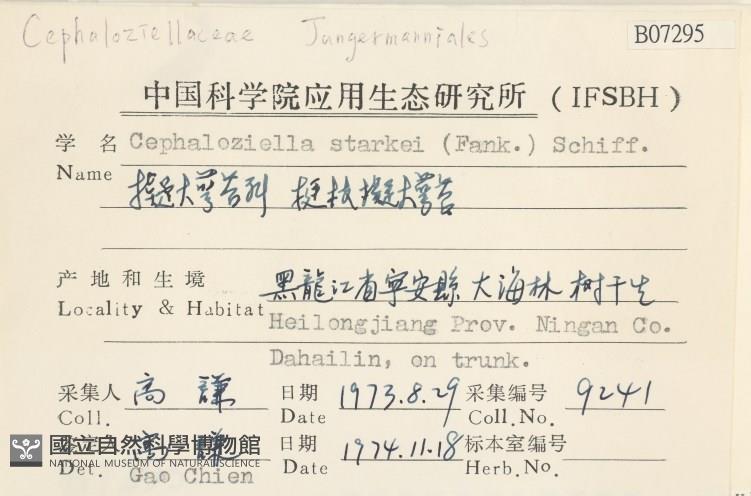 Cephaloziellaceae Jungermanniales
B07295
中国科学院应用生态研究所 (IFSBH)
学 名 Cephaloziella starkei (Fank.) Schiff.
Name 擬大萼苔科 挺枝擬大萼苔
产地和生境 黑龍江省寧安縣 大海林 树干生
Locality & Habitat Heilongjiang Prov. Ningan Co.
Dahailin, on trunk.
采集人 高 謙 日期 1973.8.29 采集编号 9241
Coll. Date Coll.No.
高 謙 日期 1974.11.18 标本室编号
Det. Gao Chien Date Herb.No.
國立自然科學博物館
NATIONAL MUSEUM OF NATURAL SCIENCE